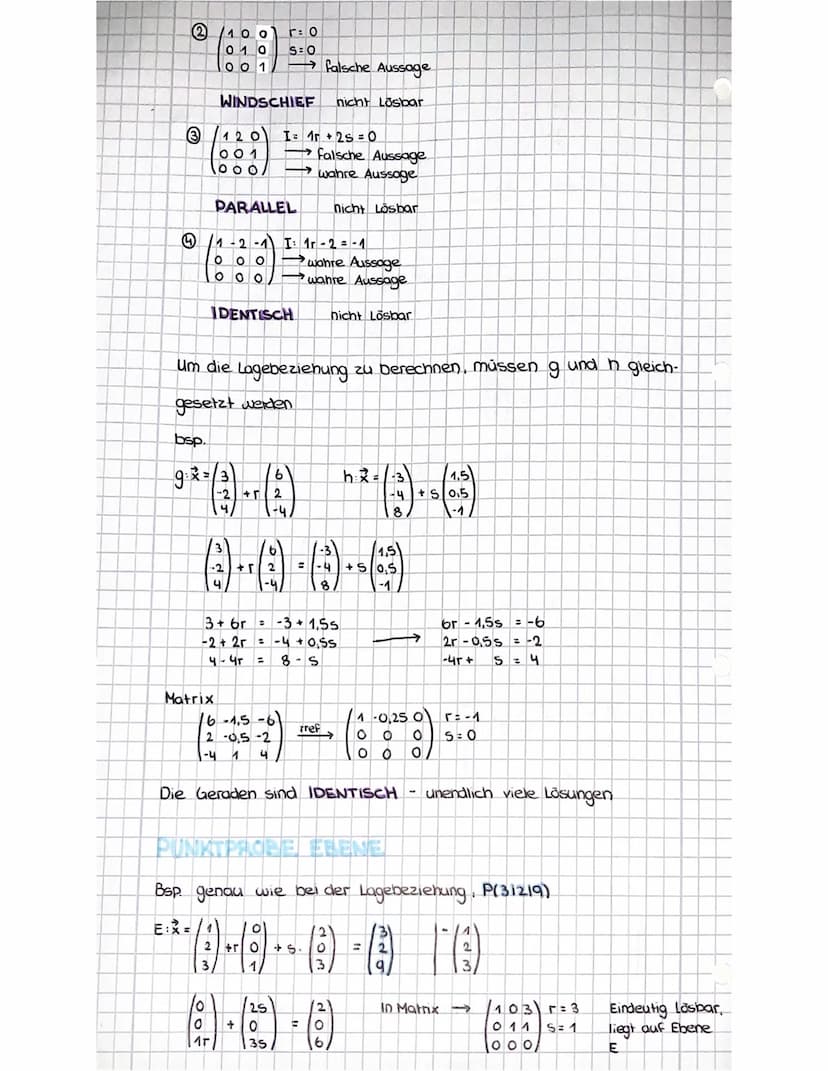 ② (1 0 0) r = 0
(0 1 0) s = 0
(0 0 1) → falsche Aussage
WINDSCHIEF nicht Lösbar
③ (1 2 0) I = 1r + 2s = 0
(0 0 1) → falsche Aussage
(0 0 0) → wahre Aussage
PARALLEL nicht Lösbar
④ (1 -2 -1) I: 1r - 2 = -1
(0 0 0) → wahre Aussage
(0 0 0) → wahre Aussage
IDENTISCH nicht Lösbar
Um die Lagebeziehung zu berechnen, müssen g und h gleich-
gesetzt werden
bsp.
g: x⃗ = (3 -2 4) + r (6 2 -4) h: x⃗ = (-3 -4 8) + s (1,5 0,5 -1)
(3 -2 4) + r (6 2 -4) = (-3 -4 8) + s (1,5 0,5 -1)
3 + 6r = -3 + 1,5s → 6r - 1,5s = -6
-2 + 2r = -4 + 0,5s 2r - 0,5s = -2
4 - 4r = 8 - s -4r + s = 4
Matrix
(6 -1,5 -6) rref → (1 -0,25 0) r = -1
(2 -0,5 -2) (0 0 0) s = 0
(-4 1 4) (0 0 0)
Die Geraden sind IDENTISCH - unendlich viele Lösungen
PUNKTPROBE EBENE
Bsp. genau wie bei der Lagebeziehung, P(3|2|9)
E: x⃗ = (1 2 3) + r (0 0 1) + s · (2 0 3) = (3 2 9) | - (1 2 3)
(0 0 1r) + (2s 0 3s) = (2 0 6) in Matrix → (1 0 3) r = 3 Eindeutig Lösbar,
(0 1 1) s = 1 liegt auf Ebene
(0 0 0) E